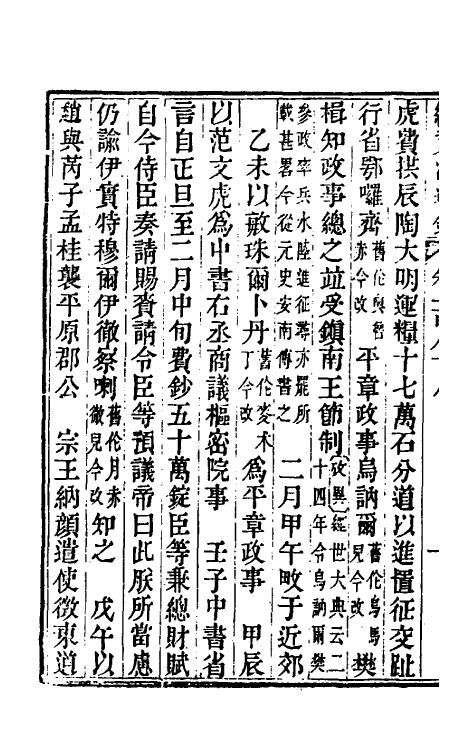 虎費拱辰陶大明運糧十七萬石分道以進置征交趾
行省鄂囉齊舊作奧魯赤今改平章政事烏訥爾舊作烏馬兒今改樊
楫知政事總之並受鎮南王節制攷異經世大典云二十四年令烏訥爾樊
參政率兵水陸進征尋亦罷所載甚畧今從元史安南傳書之 二月甲午畋于近郊
乙未以敏珠爾卜丹舊作麥术丁今改爲平章政事 甲辰
以范文虎爲中書右丞商議樞密院事 壬子中書省
言自正旦至二月中旬費鈔五十萬錠臣等兼總財賦
自今侍臣奏請賜賚請令臣等預議帝曰此朕所當慮
仍諭伊實特穆爾伊徹察喇舊作月赤徹兒今改知之 戊午以
趙與芮子孟桂襲平原郡公 宗王納顏遣使徵東道